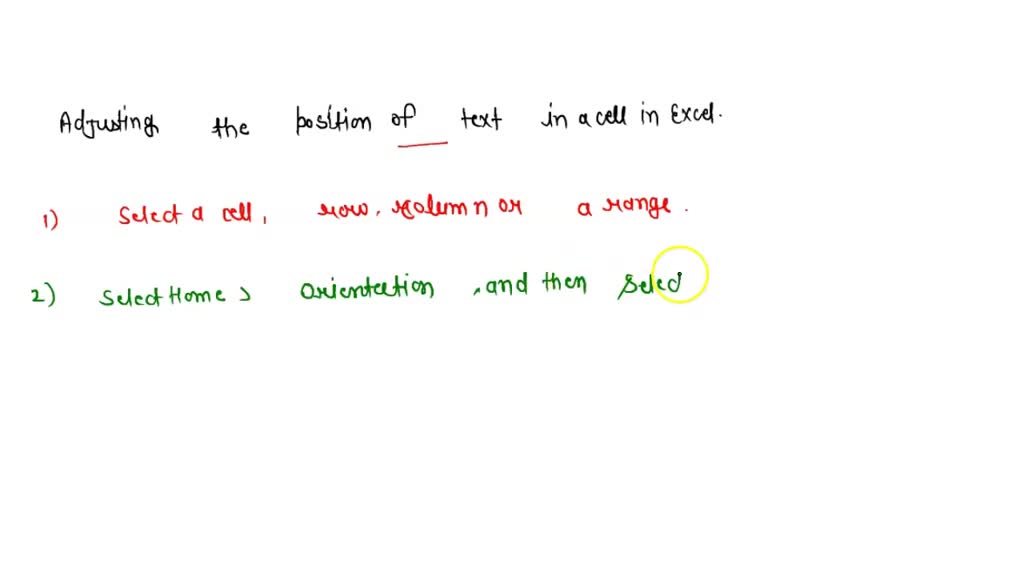 Adjusting the position of text in a cell in Excel.
1) Select a cell, row, column or a range.
2) Select Home > Orientation, and then Selec